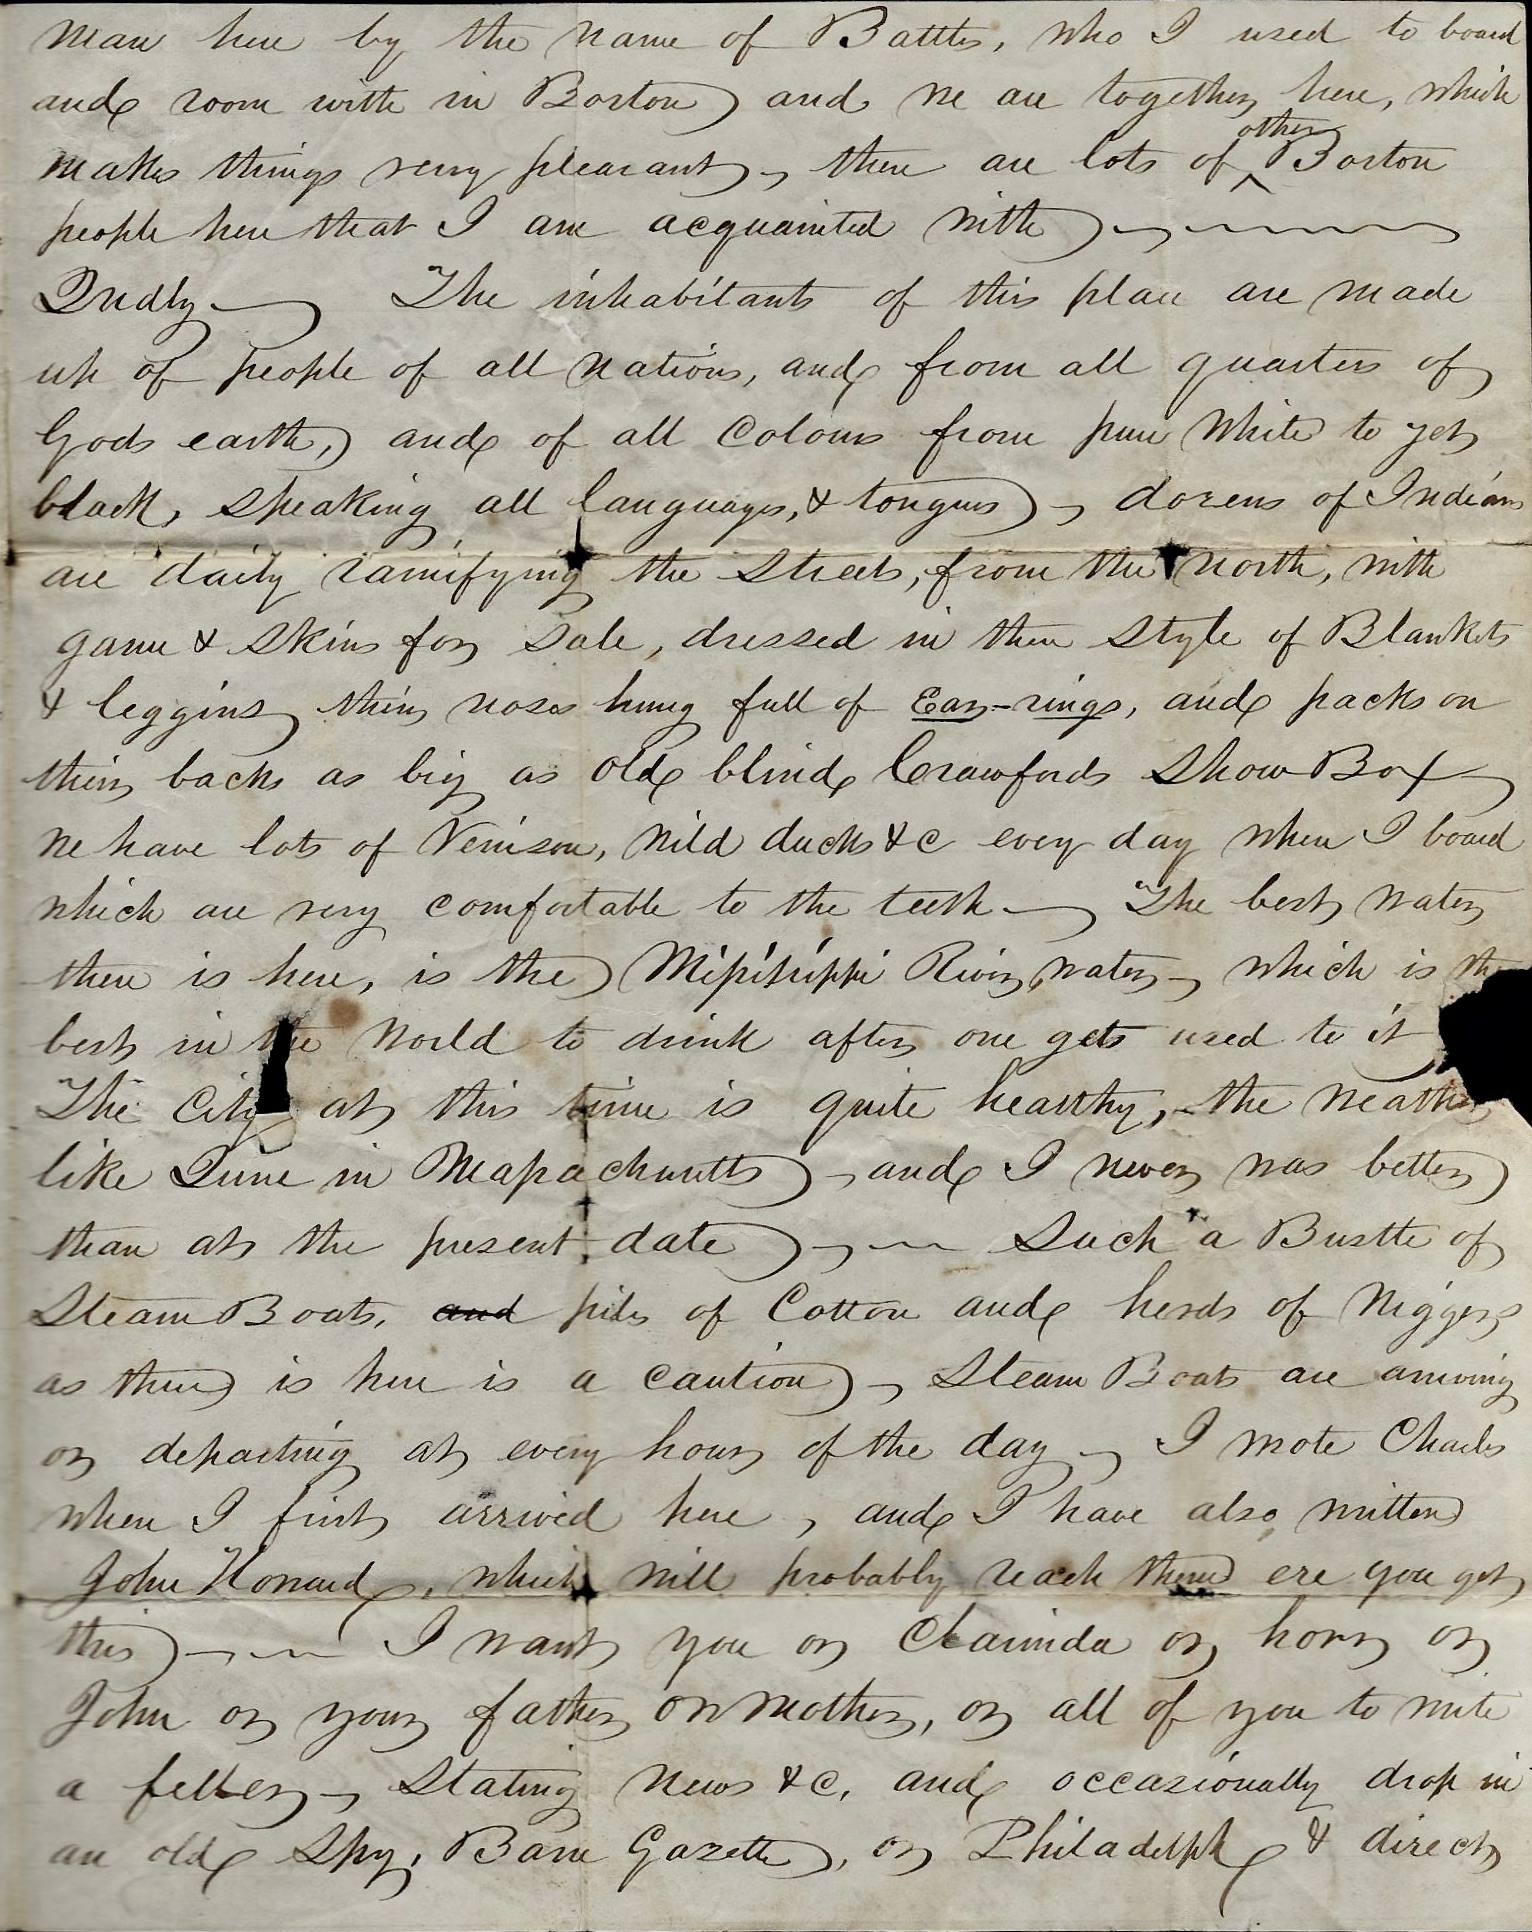 man here by the name of Battles, who I used to board
and room with in Boston and we are together here, which
makes things very pleasant, there are lots of other Boston
people here that I am acquainted with
Dudly The inhabitants of this place are made
up of people of all nations, and from all quarters of
Gods earth, and of all Colours from pure white to jet
black, speaking all languages, & tongues, dozens of Indians
are daily ramifying the Streets, from the north, with
game & skins for sale, dressed in there style of Blankets
& leggins their noses hung full of Ear-rings, and packs on
their backs as big as old blind Crawfords Show Box
we have lots of Venison, wild ducks &c every day where I board
which are very comfortable to the teeth The best water
there is here, is the Missisippi River water, which is the
best in the world to drink after one gets used to it
The City at this time is quite healthy, the weather
like June in Massachusetts, and I never was better
than at the present date Such a Bustle of
Steam Boats, and piles of Cotton and herds of Niggers
as there is here is a caution, Steam Boats are arriving
or departing at every hour of the day I wrote Charles
when I first arrived here, and I have also written
John Howard, which will probably reach them ere you get
this I want you or Clarinda or or
John or your father or mother, or all of you to write
a feller, Stating News &c, and occasionally drop in
an old Spy, Barre Gazette, or Philadelph & direct